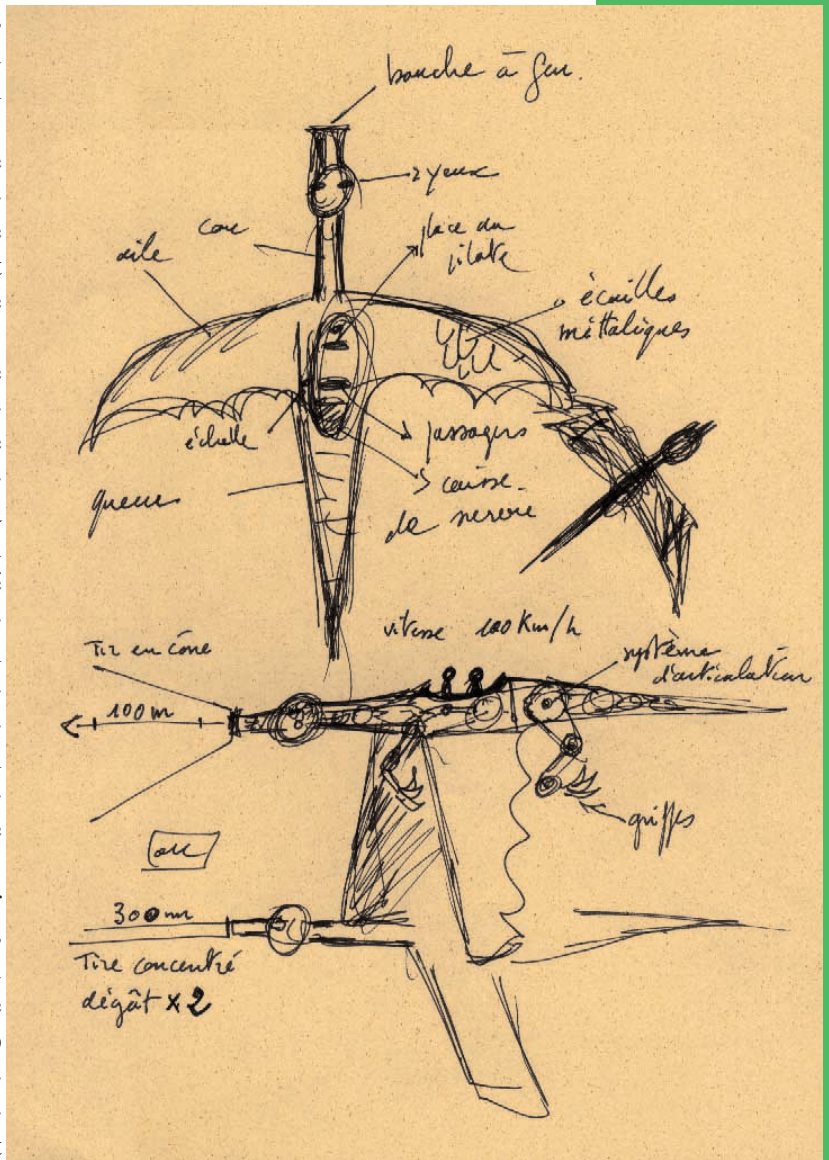 bouche à feu.
2 yeux
cou
place du
pilote
aile
écailles
mettaliques
échelle
passagers
queue
caisse
de
vitesse 100 Km/h
Tir en cône
système
d'articulation
100 m
griffes
ou
300 m
Tire concentré
dégât x 2